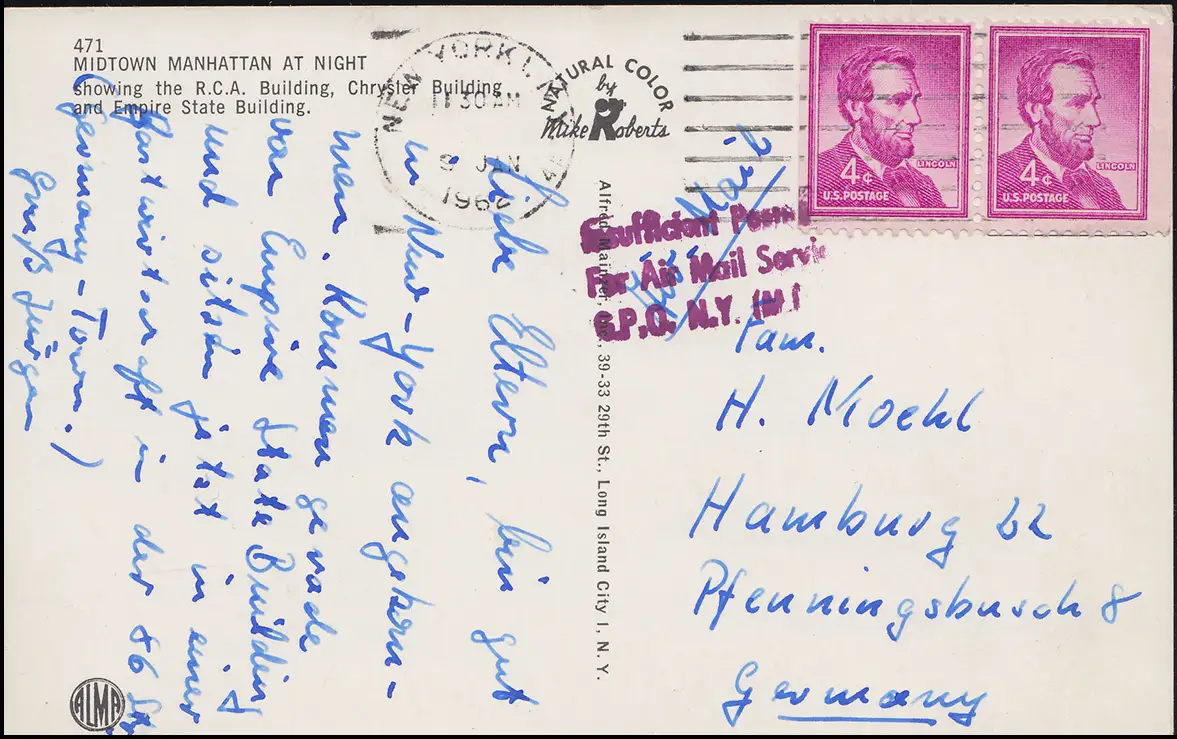 471
MIDTOWN MANHATTAN AT NIGHT
showing the R.C.A. Building, Chrysler Building
and Empire State Building.
NEW YORK 1, N.Y.
11 30 AM
9 JAN
196
NATURAL COLOR
by
Mike Roberts
4¢
LINCOLN
U.S. POSTAGE
4¢
LINCOLN
U.S. POSTAGE
Insufficient Post
For Air Mail Servi
G.P.O. N.Y.
Liebe Eltern, bin gut
in New-York angekom-
men. Kommen gerade
von Empire State Building
und sitzen jetzt in einer
Gastwirtschaft in der 86 Str
Germany-Town.)
Gruß Jürgen
Alfred Mainzer, Inc., 39-33 29th St., Long Island City 1, N. Y.
Fam.
H. Moehl
Hamburg 22
Pfenningsbusch 8
Germany
ALMA